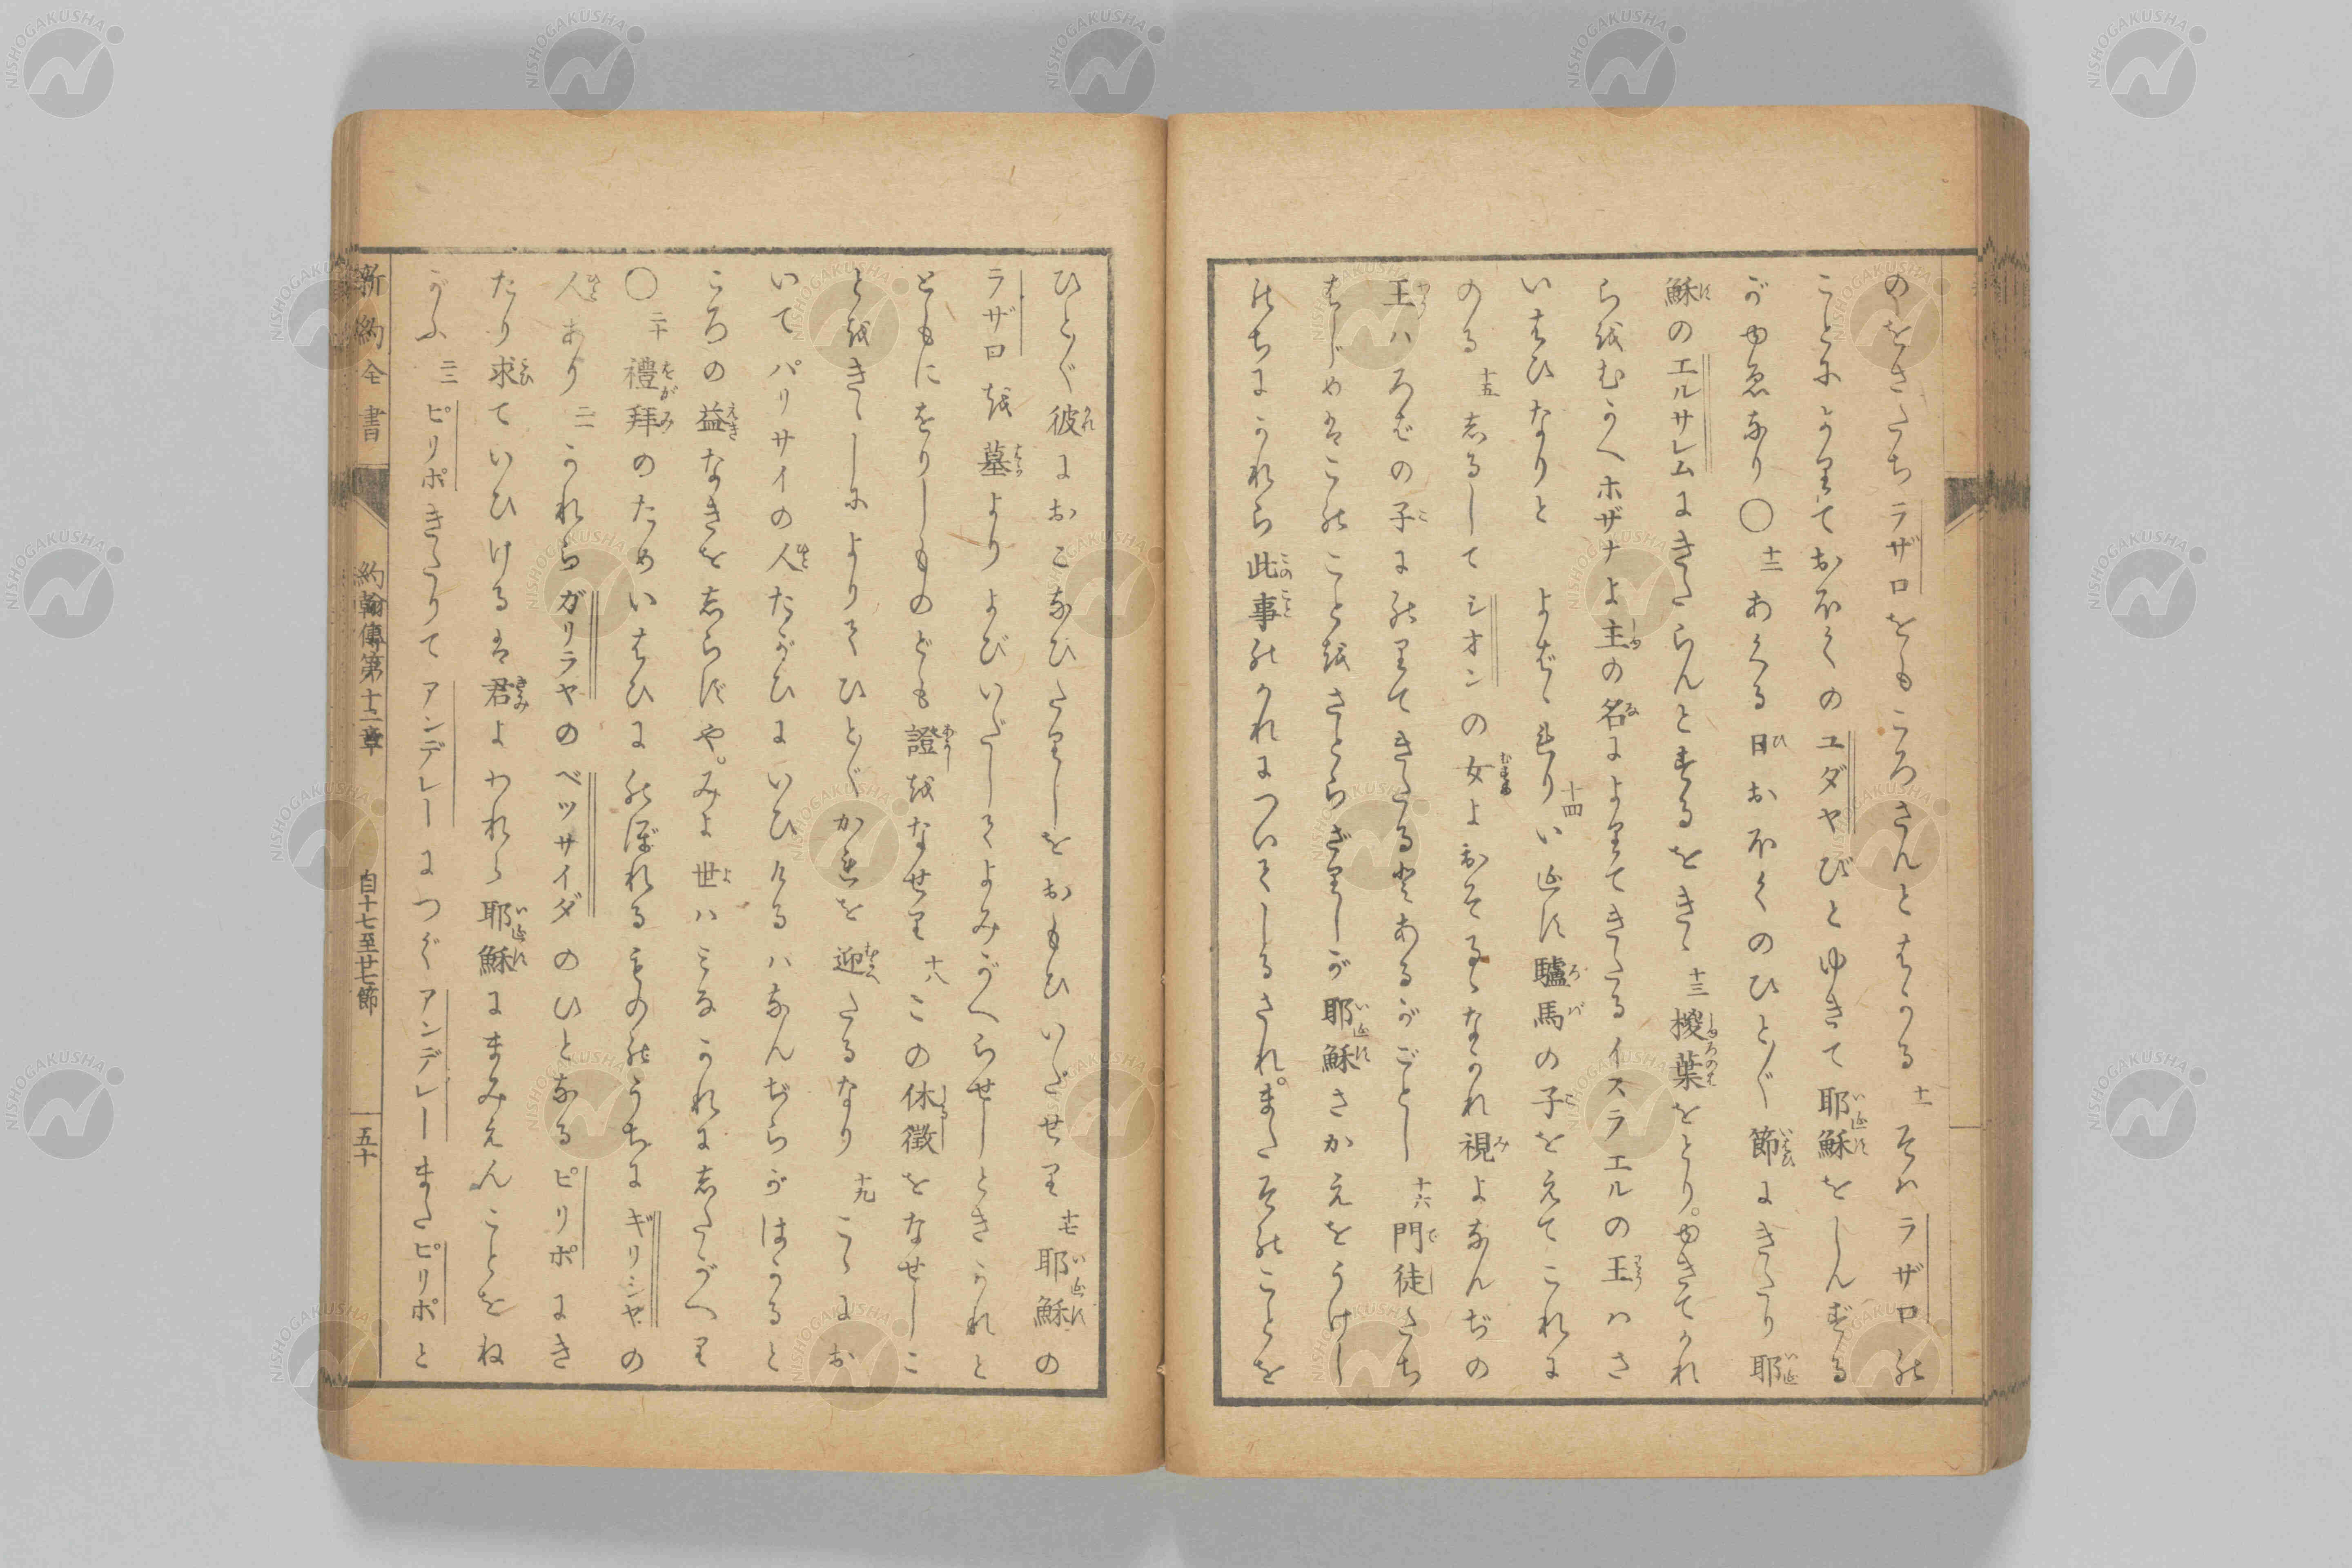 のをさたちラザロをもころさんとはかる 十一 そハラザロの
ことによりておほくのユダヤびとゆきて耶穌をしんずる
がゆゑなり〇 十二 あくる日おほくのひとぐ節にきたり耶
穌のエルサレムにきたらんとするをきゝ 十三 椶葉をとり。ゆきてかれ
らをむかへホザナよ主の名によりてきたるイスラエルの王ハさ
いはひなりと よばゝれり 十四 いエス驢馬の子をえてこれに
のる 十五 しるしてシオンの女よおそるゝなかれ視よなんぢの
王ハろばの子にのりてきたるとあるがごとし 十六 門徒たち
はじめはこのことをさとらざりしが耶穌さかえをうけし
のちにかれら此事のかれについてしるされ。またそのことを
ひとぐ彼におこなひたりしをおもひいだせり 十七 耶穌の
ラザロを墓よりよびいだしてよみがへらせしときかれと
ともにをりしものども證をなせり 十八 この休徴をなせしこ
とをきゝしによりてひとぐかれを迎たるなり 十九 こゝにお
いてパリサイの人たがひにいひけるハなんぢらがはかると
ころの益なきをしらずや。みよ世ハみなかれにしたがへり
〇 二十 禮拜のためいはひにのぼれるもののうちにギリシヤの
人あり 二一 かれらガリラヤのベツサイダのひとなるピリポにき
たり求ていひけるは君よわれら耶穌にまみえんことをね
がふ 二二 ピリポきたりてアンデレーにつぐアンデレーまたピリポと
新約全書 約翰傳第十二章 自十七至廿七節 五十